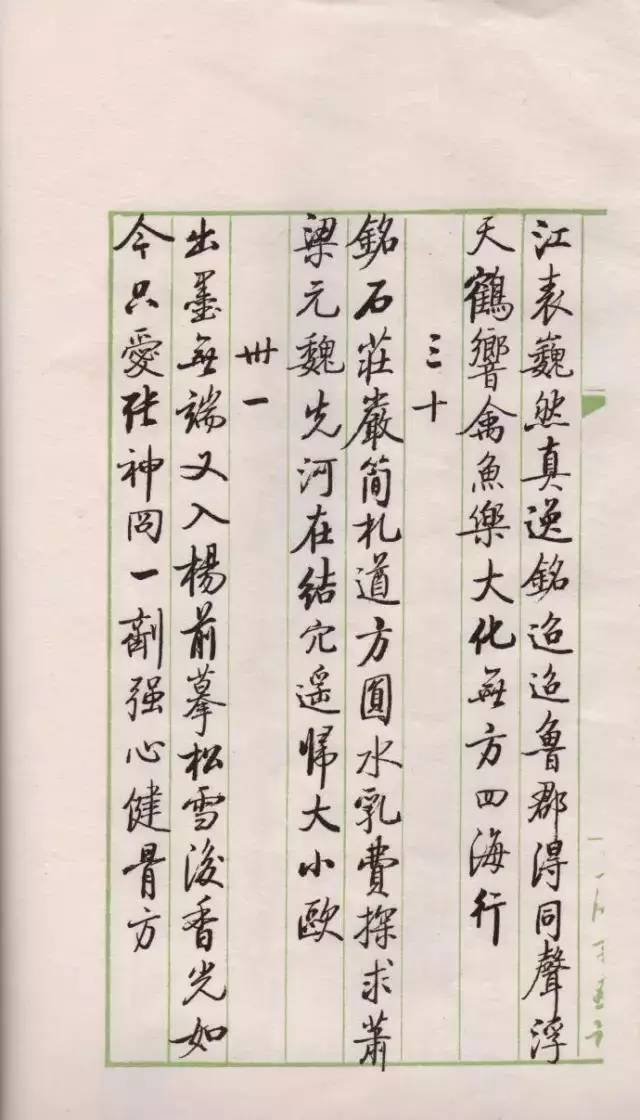 江表巍然真逸銘迢迢魯郡得同聲浮
天鶴響禽魚樂大化無方四海行
三十
銘石莊嚴簡札遒方圓水乳費探求蕭
梁元魏先河在結穴遥歸大小歐
卅一
出墨無端又入楊前摹松雪後香光如
今只愛張神冏一劑强心健骨方